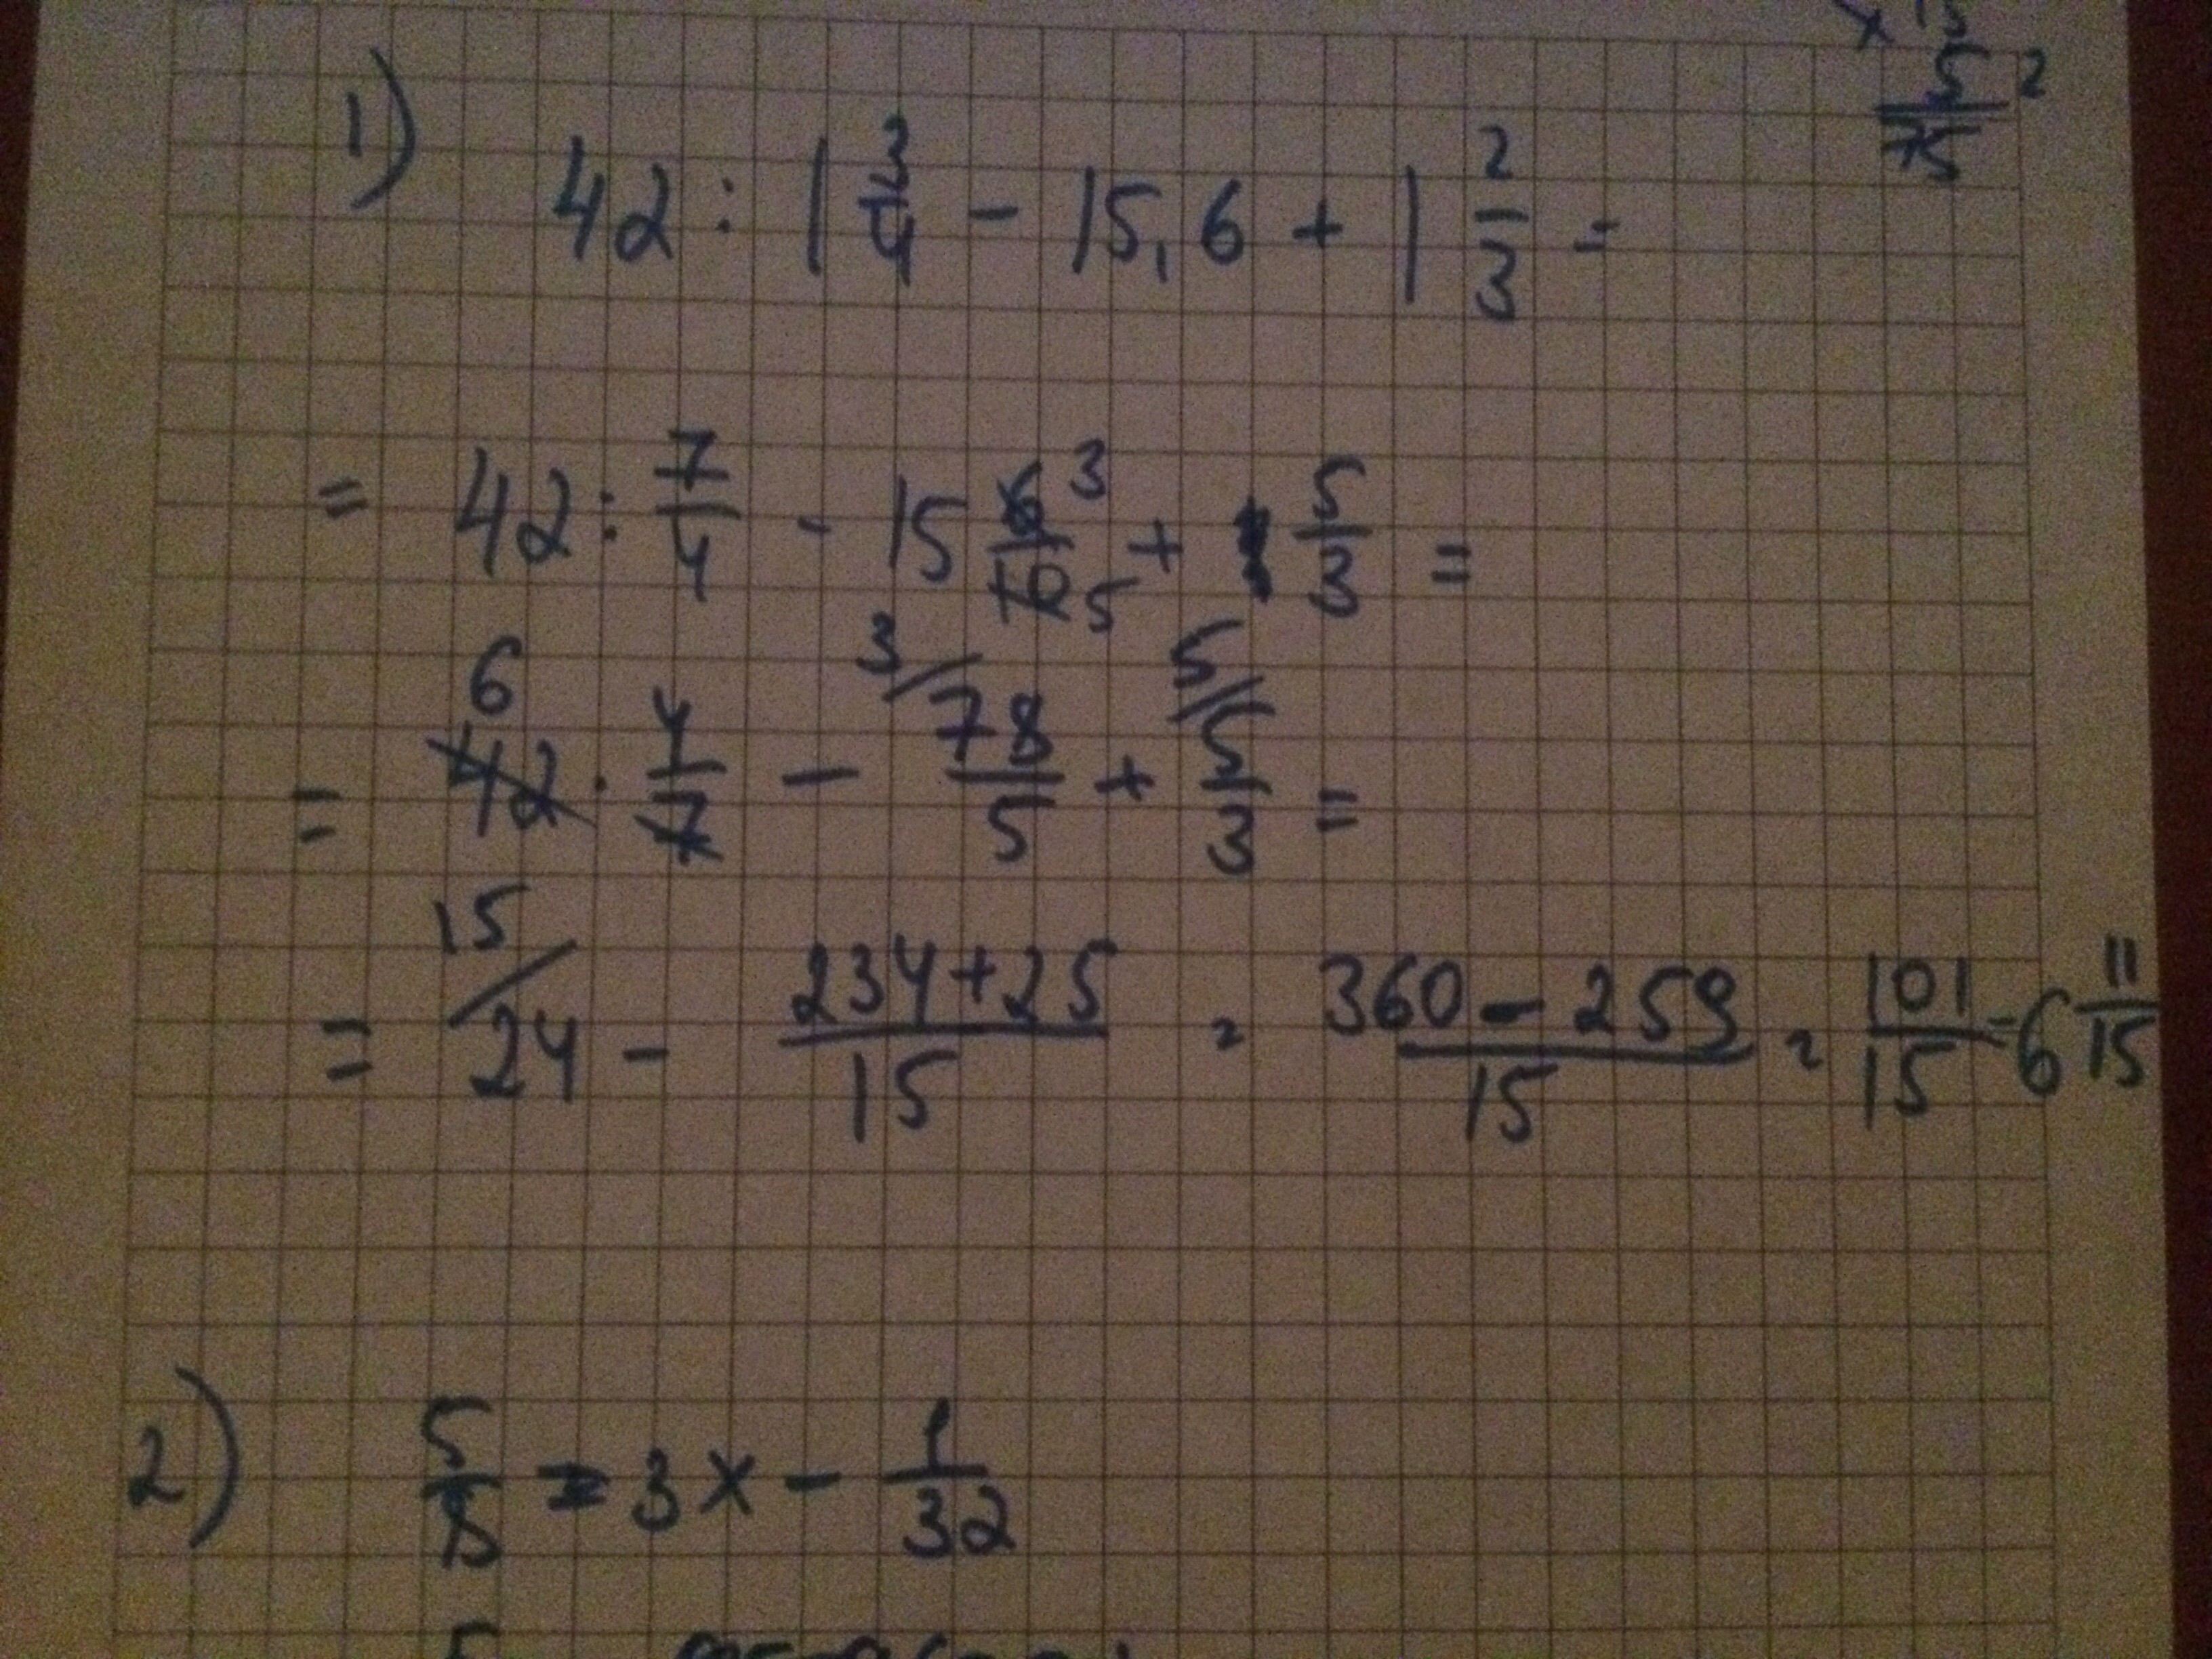 1) 42 : 1 3/4 - 15,6 + 1 2/3 =
= 42 : 7/4 - 15 6/10 3/5 + 5/3 =
= 42 6 · 4/7 - 3/ 78/5 + 5/ 5/3 =
= 15/ 24 - 234+25/15 = 360-259/15 = 101/15 = 6 11/15
2) 5/8 = 3x - 1/32